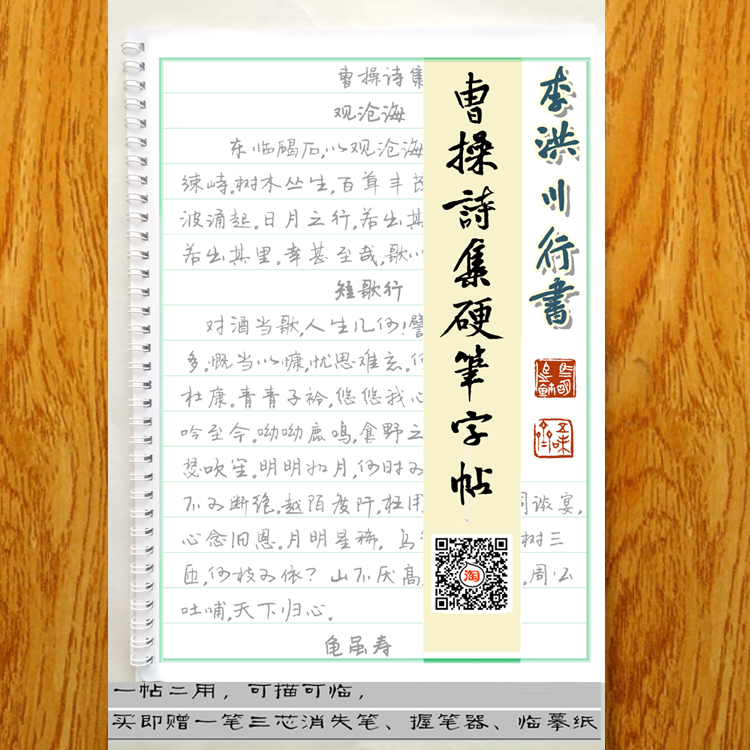 李洪川行書
曹操詩集硬筆字帖
曹操诗集
观沧海
东临碣石,以观沧海
竦峙。树木丛生,百草丰茂
波涌起。日月之行,若出其
若出其里。幸甚至哉,歌以
短歌行
对酒当歌,人生几何!譬
多。慨当以慷,忧思难忘。何
杜康。青青子衿,悠悠我心
吟至今。呦呦鹿鸣,食野之
瑟吹笙。明明如月,何时可
不可断绝。越陌度阡,枉用 谈宴,
心念旧恩。月明星稀,乌 树三
匝,何枝可依?山不厌高, 。周公
吐哺,天下归心。
龟虽寿
淘
一帖二用，可描可临，
买即赠一笔三芯消失笔、握笔器、临摹纸